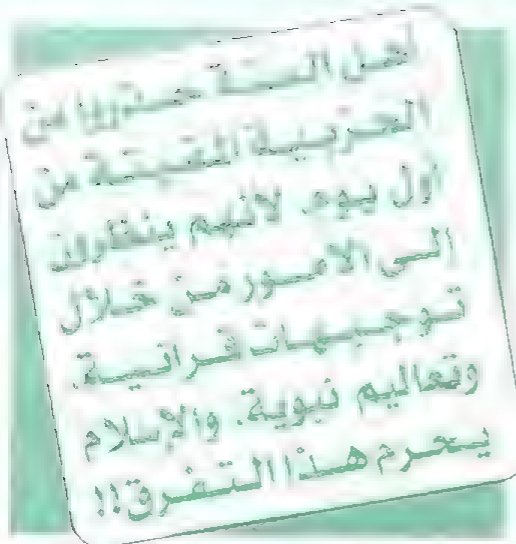 أهل السنة حذروا من
الحزبية المقيتة من
أول يوم. لأنهم ينظرون
إلى الأمور من خلال
توجيهات قرآنية.
وتعاليم نبوية. والإسلام
يحرم هذا التفرق!!